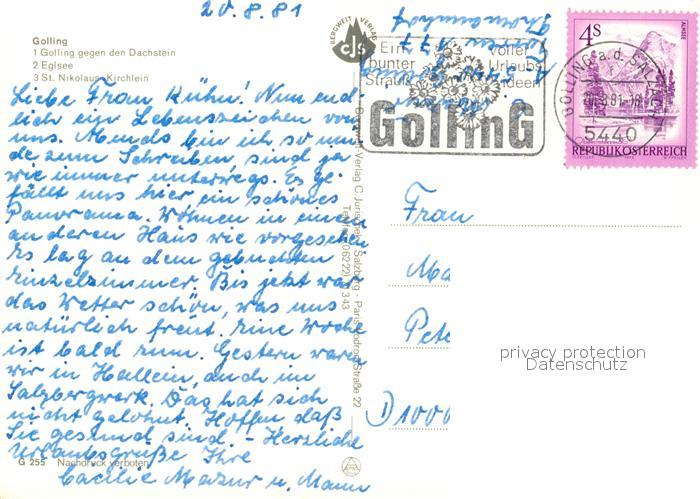 20.8.81
Golling
1 Golling gegen den Dachstein
2 Eglsee
3 St. Nikolaus-Kirchlein
Liebe Frau Kühn! Nun end-
lich ein Lebenszeichen von
uns. Abends bin ich so mü
de zum Schreiben, sind ja
wie immer unterwegs. Es ge-
fällt uns hier ein schönes
Panorama. Wohnen in einem
anderen Haus wie vorgesehen
Es lag an dem gebuchten
Einzelzimmer. Bis jetzt war
das Wetter schön, was uns
natürlich freut. Eine Woche
ist bald rum. Gestern waren
wir in Hallein, auch im
Salzbergwerk. Das hat sich
nicht gelohnt. Hoffen daß
Sie gesund sind. - Herzliche
Urlaubsgrüße Ihre
Cäcilie Mazur u. Mann
G 255 Nachdruck verboten
BERGWELT VERLAG
cjs
Verlag C. Jurischek, Salzburg - Paris-Lodron-Straße 22
Ein voller
bunter Urlaubs
Strauß ideen
GollinG
GOLLING a.d. SALZACH
5440
4 S
ALMSEE
REPUBLIK ÖSTERREICH
Frau
Ma
Pete
D 1000
privacy protection
Datenschutz